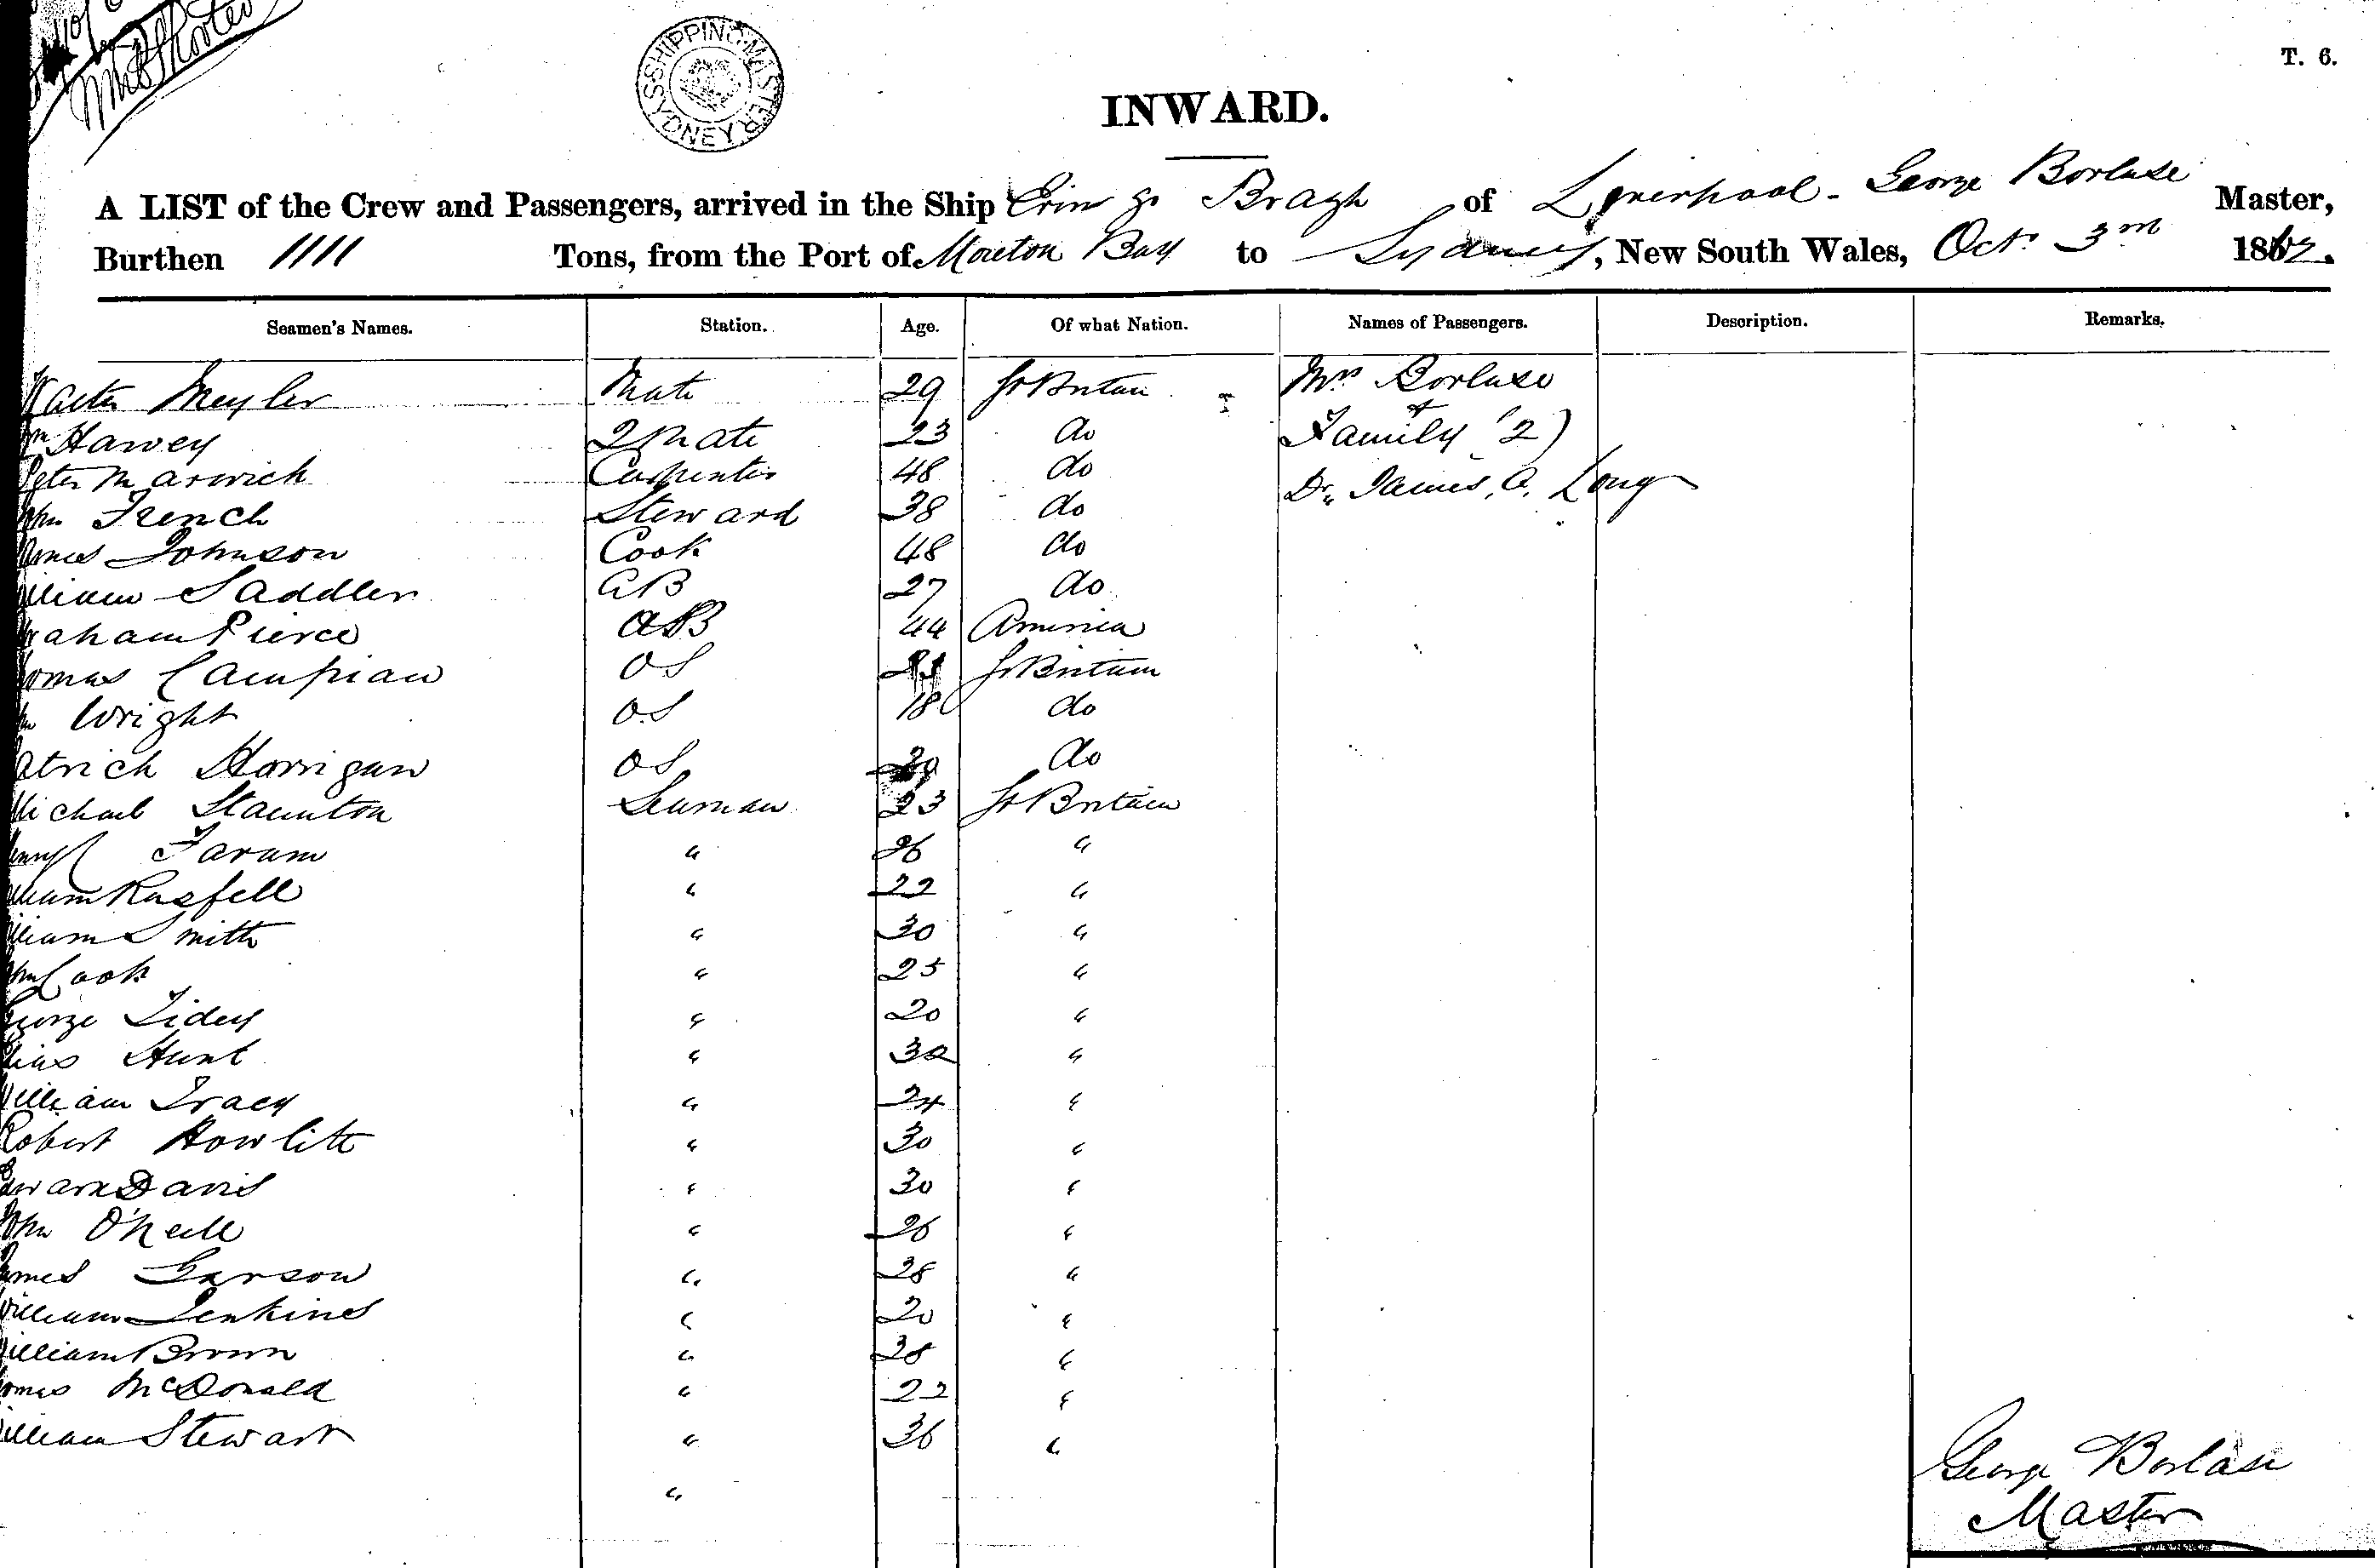 SHIPPING MASTER SYDNEY
T. 6.
INWARD.
A LIST of the Crew and Passengers, arrived in the Ship Erin go Bragh of Liverpool - George Borlase Master,
Burthen 1111 Tons, from the Port of Moreton Bay to Sydney, New South Wales, Oct 3rd 1862.
Seamen's Names. Station. Age. Of what Nation. Names of Passengers. Description. Remarks.
Walter Meyler Mate 29 Gt Britain Mrs Borlase
Wm Harvey 2 Mate 23 do + Family (2)
Peter Marwick Carpenter 48 do Dr. James. A. Long
John French Steward 38 do
James Johnson Cook 48 do
William Saddler AB 27 do
Graham Pierce AB 44 America
Thomas Campian OS Gt Britain
Wright O.S 18 do
Patrick Horrigan OS do
Michael Staunton Seaman 23 Gt Britain
Henry Farum " 26 "
William Russell " 22 "
William Smith " 30 "
John Cook " 25 "
George Tidey " 20 "
Elias Hunt " 32 "
William Tracy " 24 "
Robert Howlitt " 30 "
Edward Davis " 30 "
John O'Neill " 26 "
James Garson " 28 "
William Jenkins " 20 "
William Brown " 38 "
McDonald " 22 "
William Stewart " 36 "
"
George Borlase
Master